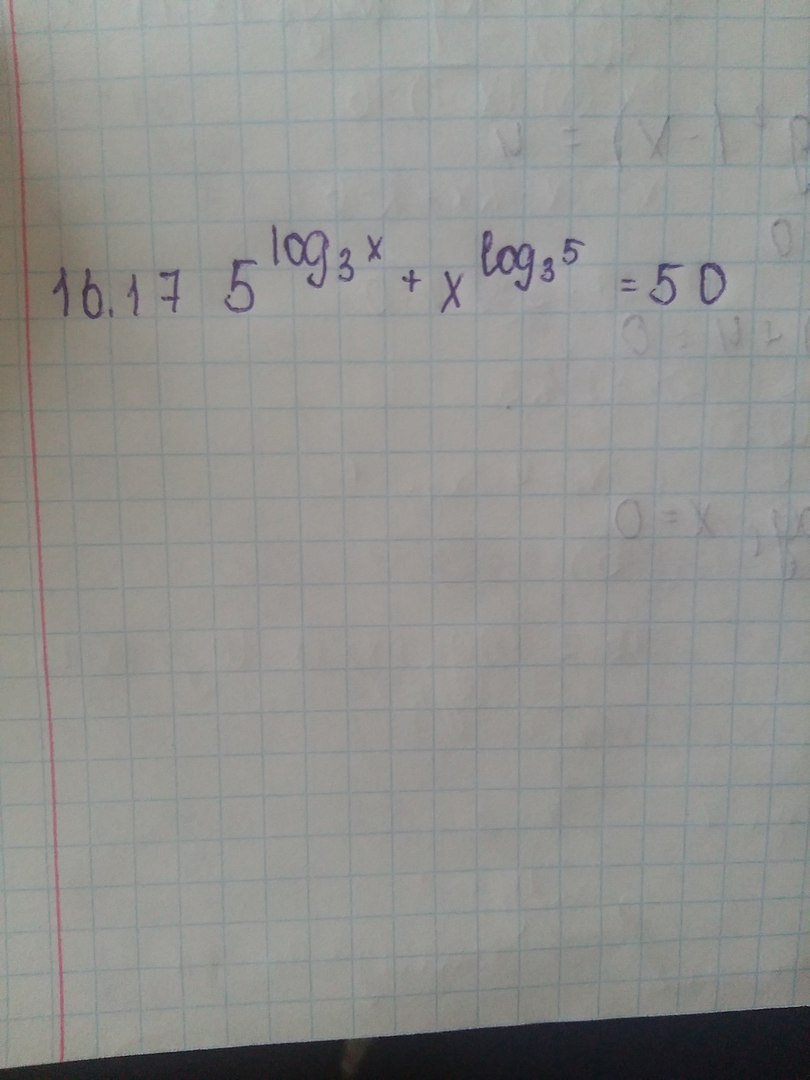 16.17 5^log₃x + x^log₃5 = 50